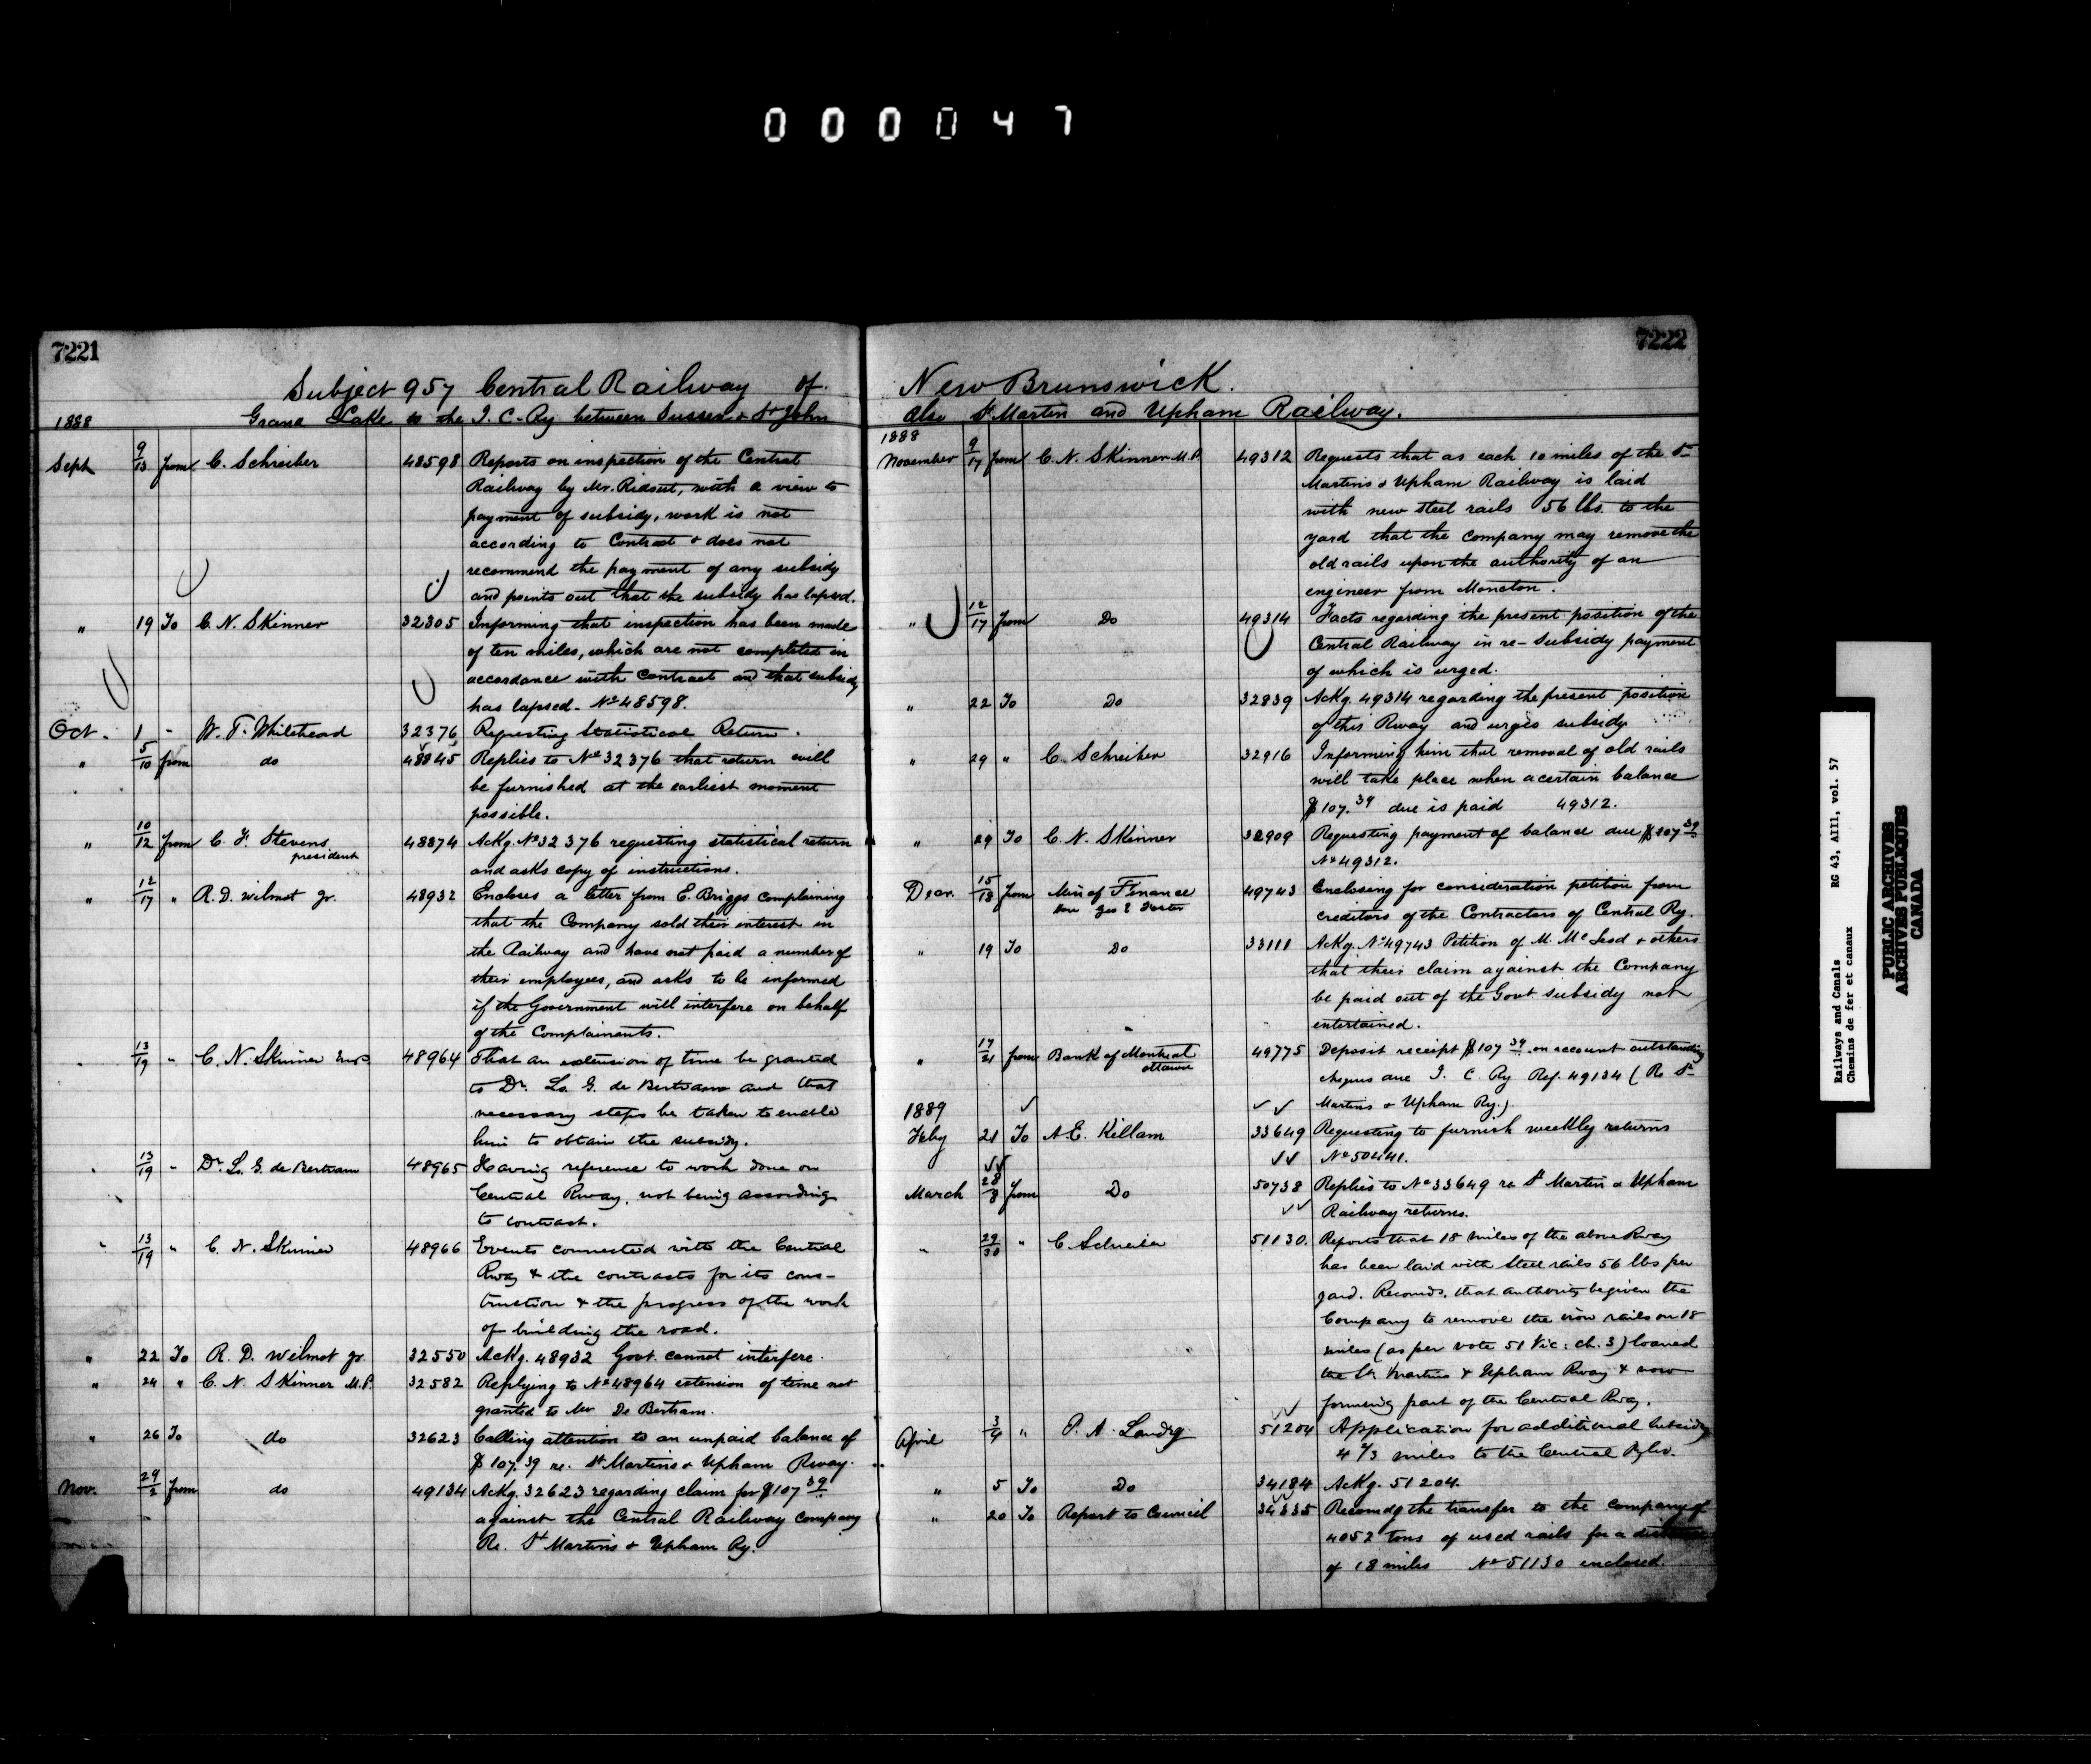 000047
7221
Subject 957 Central Railway of
1888 Grand Lake to the I. C. Ry between Sussex & St John
Sept 9/13 from C. Schreiber 48598 Reports on inspection of the Central
Railway by Mr. Ridout, with a view to
payment of subsidy, work is not
according to Contract & does not
recommend the payment of any subsidy
and points out that the subsidy has lapsed.
" 19 To C. N. Skinner 32305 Informing that inspection has been made
of ten miles, which are not completed in
accordance with contract and that subsidy
has lapsed - No 48598.
Oct. 1 " W. T. Whitehead 32376 Requesting Statistical Return.
" 5/10 from do 48845 Replies to No 32376 that return will
be furnished at the earliest moment
possible.
" 10/12 from C. F. Stevens 48874 Ackg. No 32376 requesting statistical return
president
and asks copy of instructions.
" 12/17 " R. D. Wilmot jr. 48932 Encloses a letter from E. Briggs complaining
that the Company sold their interest in
the Railway and have not paid a number of
their employees, and asks to be informed
if the Government will interfere on behalf
of the Complainants.
13/19 " C. N. Skinner 48964 That an extension of time be granted
to Dr. L. G. de Bertram and that
necessary steps be taken to enable
him to obtain the subsidy.
13/19 " Dr. L. G. de Bertram 48965 Having reference to work done on
Central Rway. not being according
to contract.
" 13/19 " C. N. Skinner 48966 Events connected with the Central
Rway & the contracts for its cons-
truction & the progress of the work
of building the road.
" 22 To R. D. Wilmot jr. 32550 Ackg. 48932 Govt. cannot interfere.
" 24 " C. N. Skinner M.P. 32582 Replying to No 48964 extension of time not
granted to Mr De Bertram.
" 26 To do 32623 Calling attention to an unpaid balance of
$107.39 re. St Martins & Upham Rway.
Nov. 29/2 from do 49134 Ackg. 32623 regarding claim for $107 39
against the Central Railway Company
Re. St Martins & Upham Ry.
7222
New Brunswick.
Also St Martin and Upham Railway.
1888
November 9/17 from C. N. Skinner M.P. 49312 Requests that as each 10 miles of the St
Martins & Upham Railway is laid
with new steel rails 56 lbs. to the
yard that the Company may remove the
old rails upon the authority of an
engineer from Moncton.
" 12/17 from Do 49314 Facts regarding the present position of the
Central Railway in re- subsidy payment
of which is urged.
" 22 To Do 32839 Ackg. 49314 regarding the present position
of this Rway and urges subsidy
" 29 " C. Schreiber 32916 Informing him that removal of old rails
will take place when a certain balance
$107.39 due is paid 49312.
" 29 To C. N. Skinner 32909 Requesting payment of balance due $107 39
No 49312.
Decr. 15/18 from Min of Finance 49743 Enclosing for consideration petition from
Hon Geo E Foster
creditors of the Contractors of Central Ry.
" 19 To Do 33111 Ackg. No 49743 Petition of M. McLeod & others
that their claim against the Company
be paid out of the Govt subsidy not
entertained.
" 17/21 from Bank of Montreal 49775 Deposit receipt $107 39 on account outstanding
Ottawa
cheques due I. C. Ry Ref. 49134 (Re St
Martins & Upham Ry.)
1889
Feby 21 To A. E. Killam 33649 Requesting to furnish weekly returns
No 50441.
March 28/8 from Do 50738 Replies to No 33649 re St Martin & Upham
Railway returns.
" 29/30 " C Schreiber 51130. Reports that 18 miles of the above Rway
has been laid with steel rails 56 lbs per
yard. Recomds. that authority be given the
Company to remove the iron rails on 18
miles (as per vote 51 Vic: ch. 3) loaned
the St. Martins & Upham Rway & now
forming part of the Central Rway.
April 3/4 " P. A. Landry 51204 Application for additional subsidy
4 2/3 miles to the Central Rylw.
" 5 To Do 34184 Ackg. 51204.
" 20 To Report to Council 34335 Recomdg the transfer to the company of
4052 tons of used rails for a distance
of 18 miles No 51130 enclosed.
Railways and Canals RG 43, AIII, vol. 57
Chemins de fer et canaux
PUBLIC ARCHIVES
ARCHIVES PUBLIQUES
CANADA